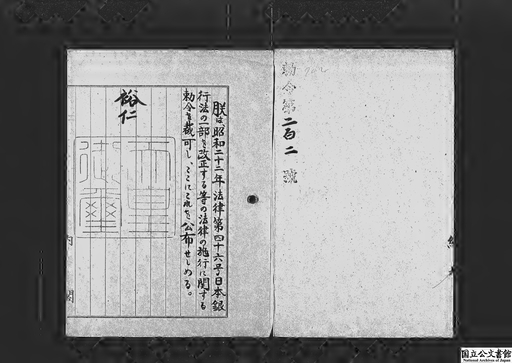 勅令第二百二號
朕は、昭和二十二年法律第四十六号日本銀
行法の一部を改正する等の法律の施行に関する
勅令を裁可し、ここにこれを公布せしめる。
裕仁
天皇
御璽
内閣
国立公文書館
National Archives of Japan